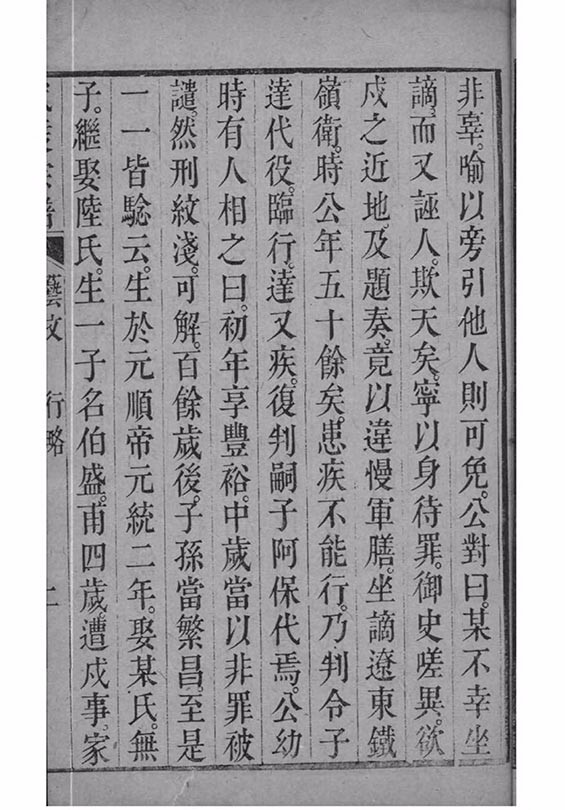 非辜。喻以旁引他人則可免。公對曰。某不幸坐
謫。而又誣人。欺天矣。寧以身待罪。御史嗟異。欲
戍之近地。及題奏。竟以違慢軍膳。坐謫遼東鐵
嶺衛。時公年五十餘矣。患疾不能行。乃判令子
達代役。臨行。達又疾。復判嗣子阿保代焉。公幼
時有人相之曰。初年享豐裕。中歲當以非罪被
譴。然刑紋淺。可解。百餘歲後。子孫當繁昌。至是
一一皆驗云。生於元順帝元統二年。娶某氏。無
子。繼娶陸氏。生一子名伯盛。甫四歲。遭戍事。家
藝文 行略 二